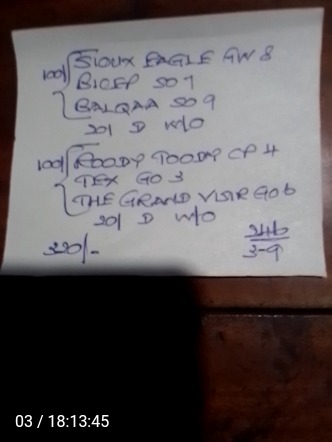 100/ SIOUX EAGLE GW 8
BICEP SO 7
BALQAA SO 9
20/ D W/O
100/ ROODY TOODY CP 4
TEX GO 3
THE GRAND VISIR GO 6
20/ D W/O
320/-
3-9
03 / 18:13:45